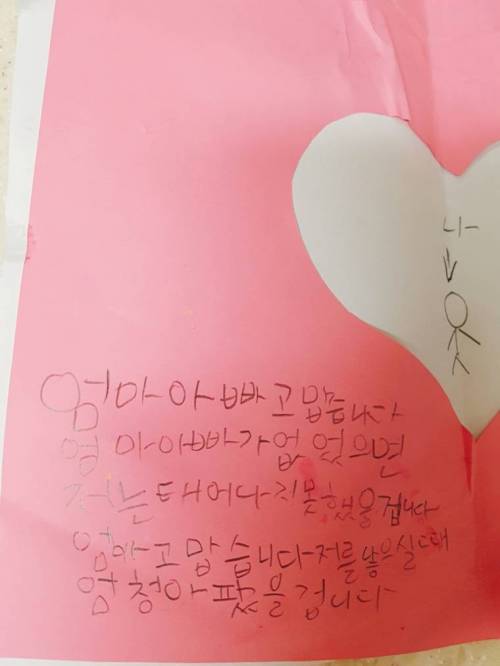 나
엄마아빠고맙습니다
엄마아빠가없었으면
저는태어나지못했을겁니다
엄마고맙습니다저를낳으실때
엄청아팠을겁니다